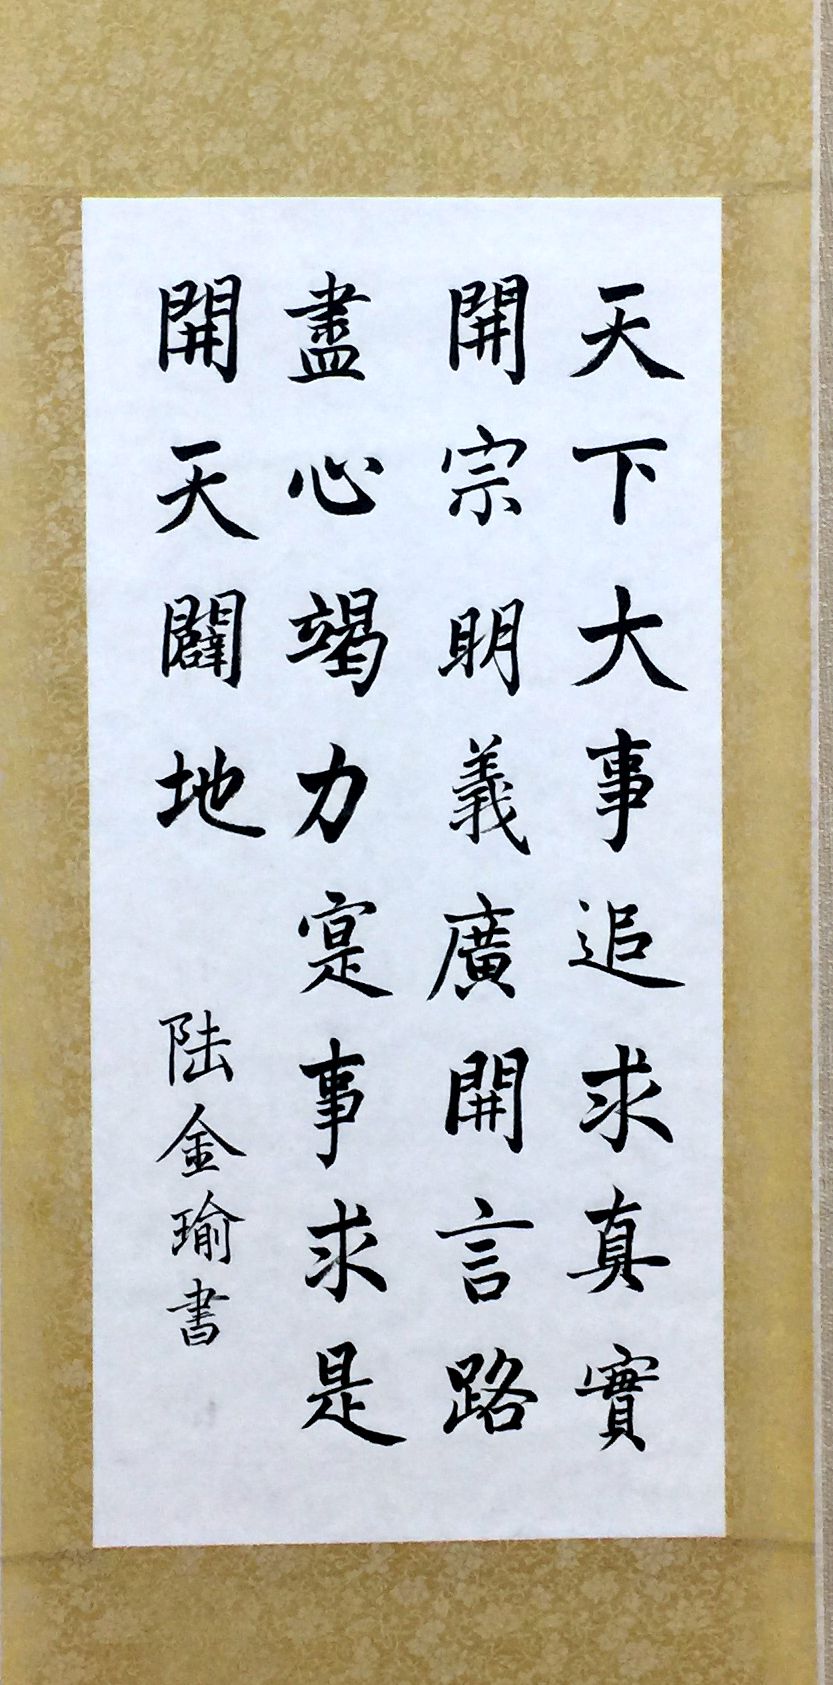 天下大事追求真實
開宗明義廣開言路
盡心竭力寔事求是
開天闢地
陆金瑜書